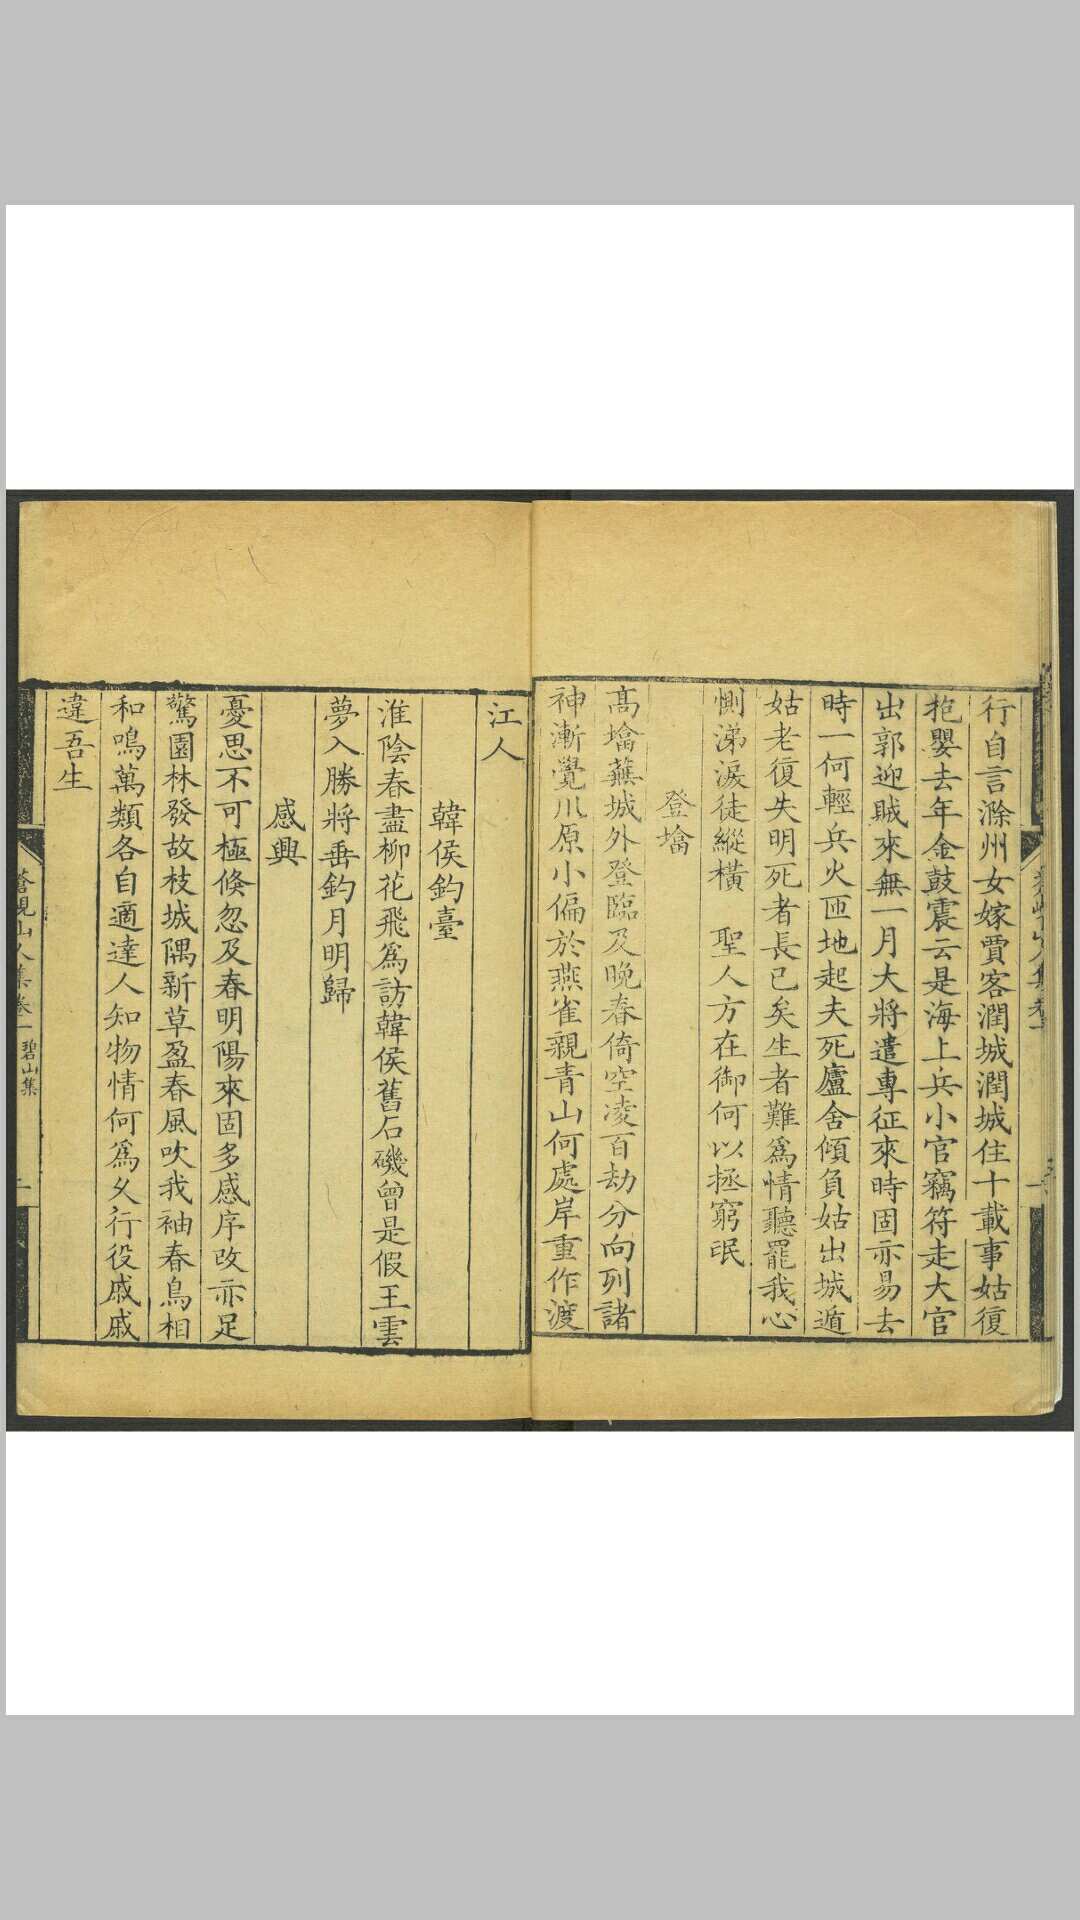 行自言滁州女嫁賈客潤城潤城住十載事姑復
抱嬰去年金鼓震云是海上兵小官竊符走大官
出郭迎賊來無一月大將遣專征來時固亦易去
時一何輕兵火匝地起夫死廬舍傾負姑出城遁
姑老復失明死者長已矣生者難爲情聽罷我心
惻涕淚徒縱橫　聖人方在御何以拯窮氓
登墖
高墖蕪城外登臨及晚春倚空凌百劫分向列諸
神漸覺川原小偏於燕雀親青山何處岸重作渡
江人
韓侯釣臺
淮陰春盡柳花飛爲訪韓侯舊石磯曾是假王雲
夢入勝將垂釣月明歸
感興
憂思不可極倏忽及春明陽來固多感序改亦足
驚園林發故枝城隅新草盈春風吹我袖春鳥相
和鳴萬類各自適達人知物情何爲久行役戚戚
違吾生
蒼峴山人集卷一 碧山集